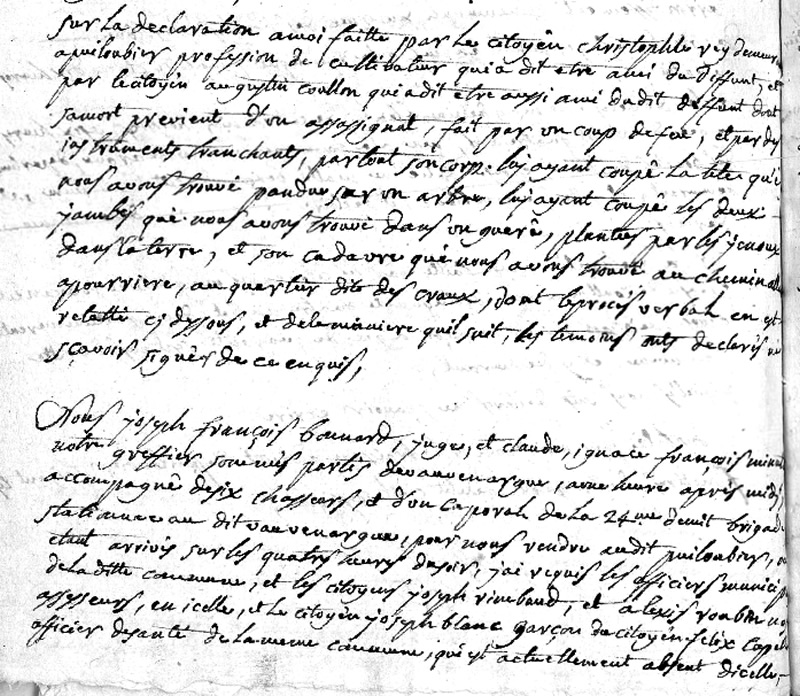 Sur la declaration amoi faitte par Le citoyen christophle rey demeur
apuiloubier profession de cultivateur quia dit etre ami du Diffunt, et
par le citoyen augustin coullon quiadit etre aussi ami dudit deffunt dont
samort previent d'un assasignat, fait par un coup defeu, et par des
instruments tranchants, partout soncorp. luy ayant coupé La tete que
nous avons trouvé pandue sur un arbre, luy ayant coupé les deux
jambes que nous avons trouvé dans un gueré, plantées par les jenoux
dans laterre, et son cadavre que nous avons trouvé au chemin al
apourriere, au quartier dit des craux, dont leprocès verbal en est
relatté cy dessous, et delamaniere quil suit, les temoins onts declarés ne
sçavoir signer de ce enquis,
Nous joseph françois bonnard, juge, et claude, ignace françois
notre greffier sommes partis devauvenargue, aune heure après midi,
accompagné desix chasseurs, et d'un caporal de La 24me demit brigad
stationnée au dit vauvenargue, pour nous rendre audit puiloubier,
etant arrivés sur les quatres heures dusoir, j'ai requis les officiers municip
deladitte commune, et les citoyens joseph rimbaud, et alexis
assesseurs, en icelle, et Le citoyen joseph blanc garçon du citoyen felix
officier desanté de la meme commune, qui est actuellement absent dicelle,